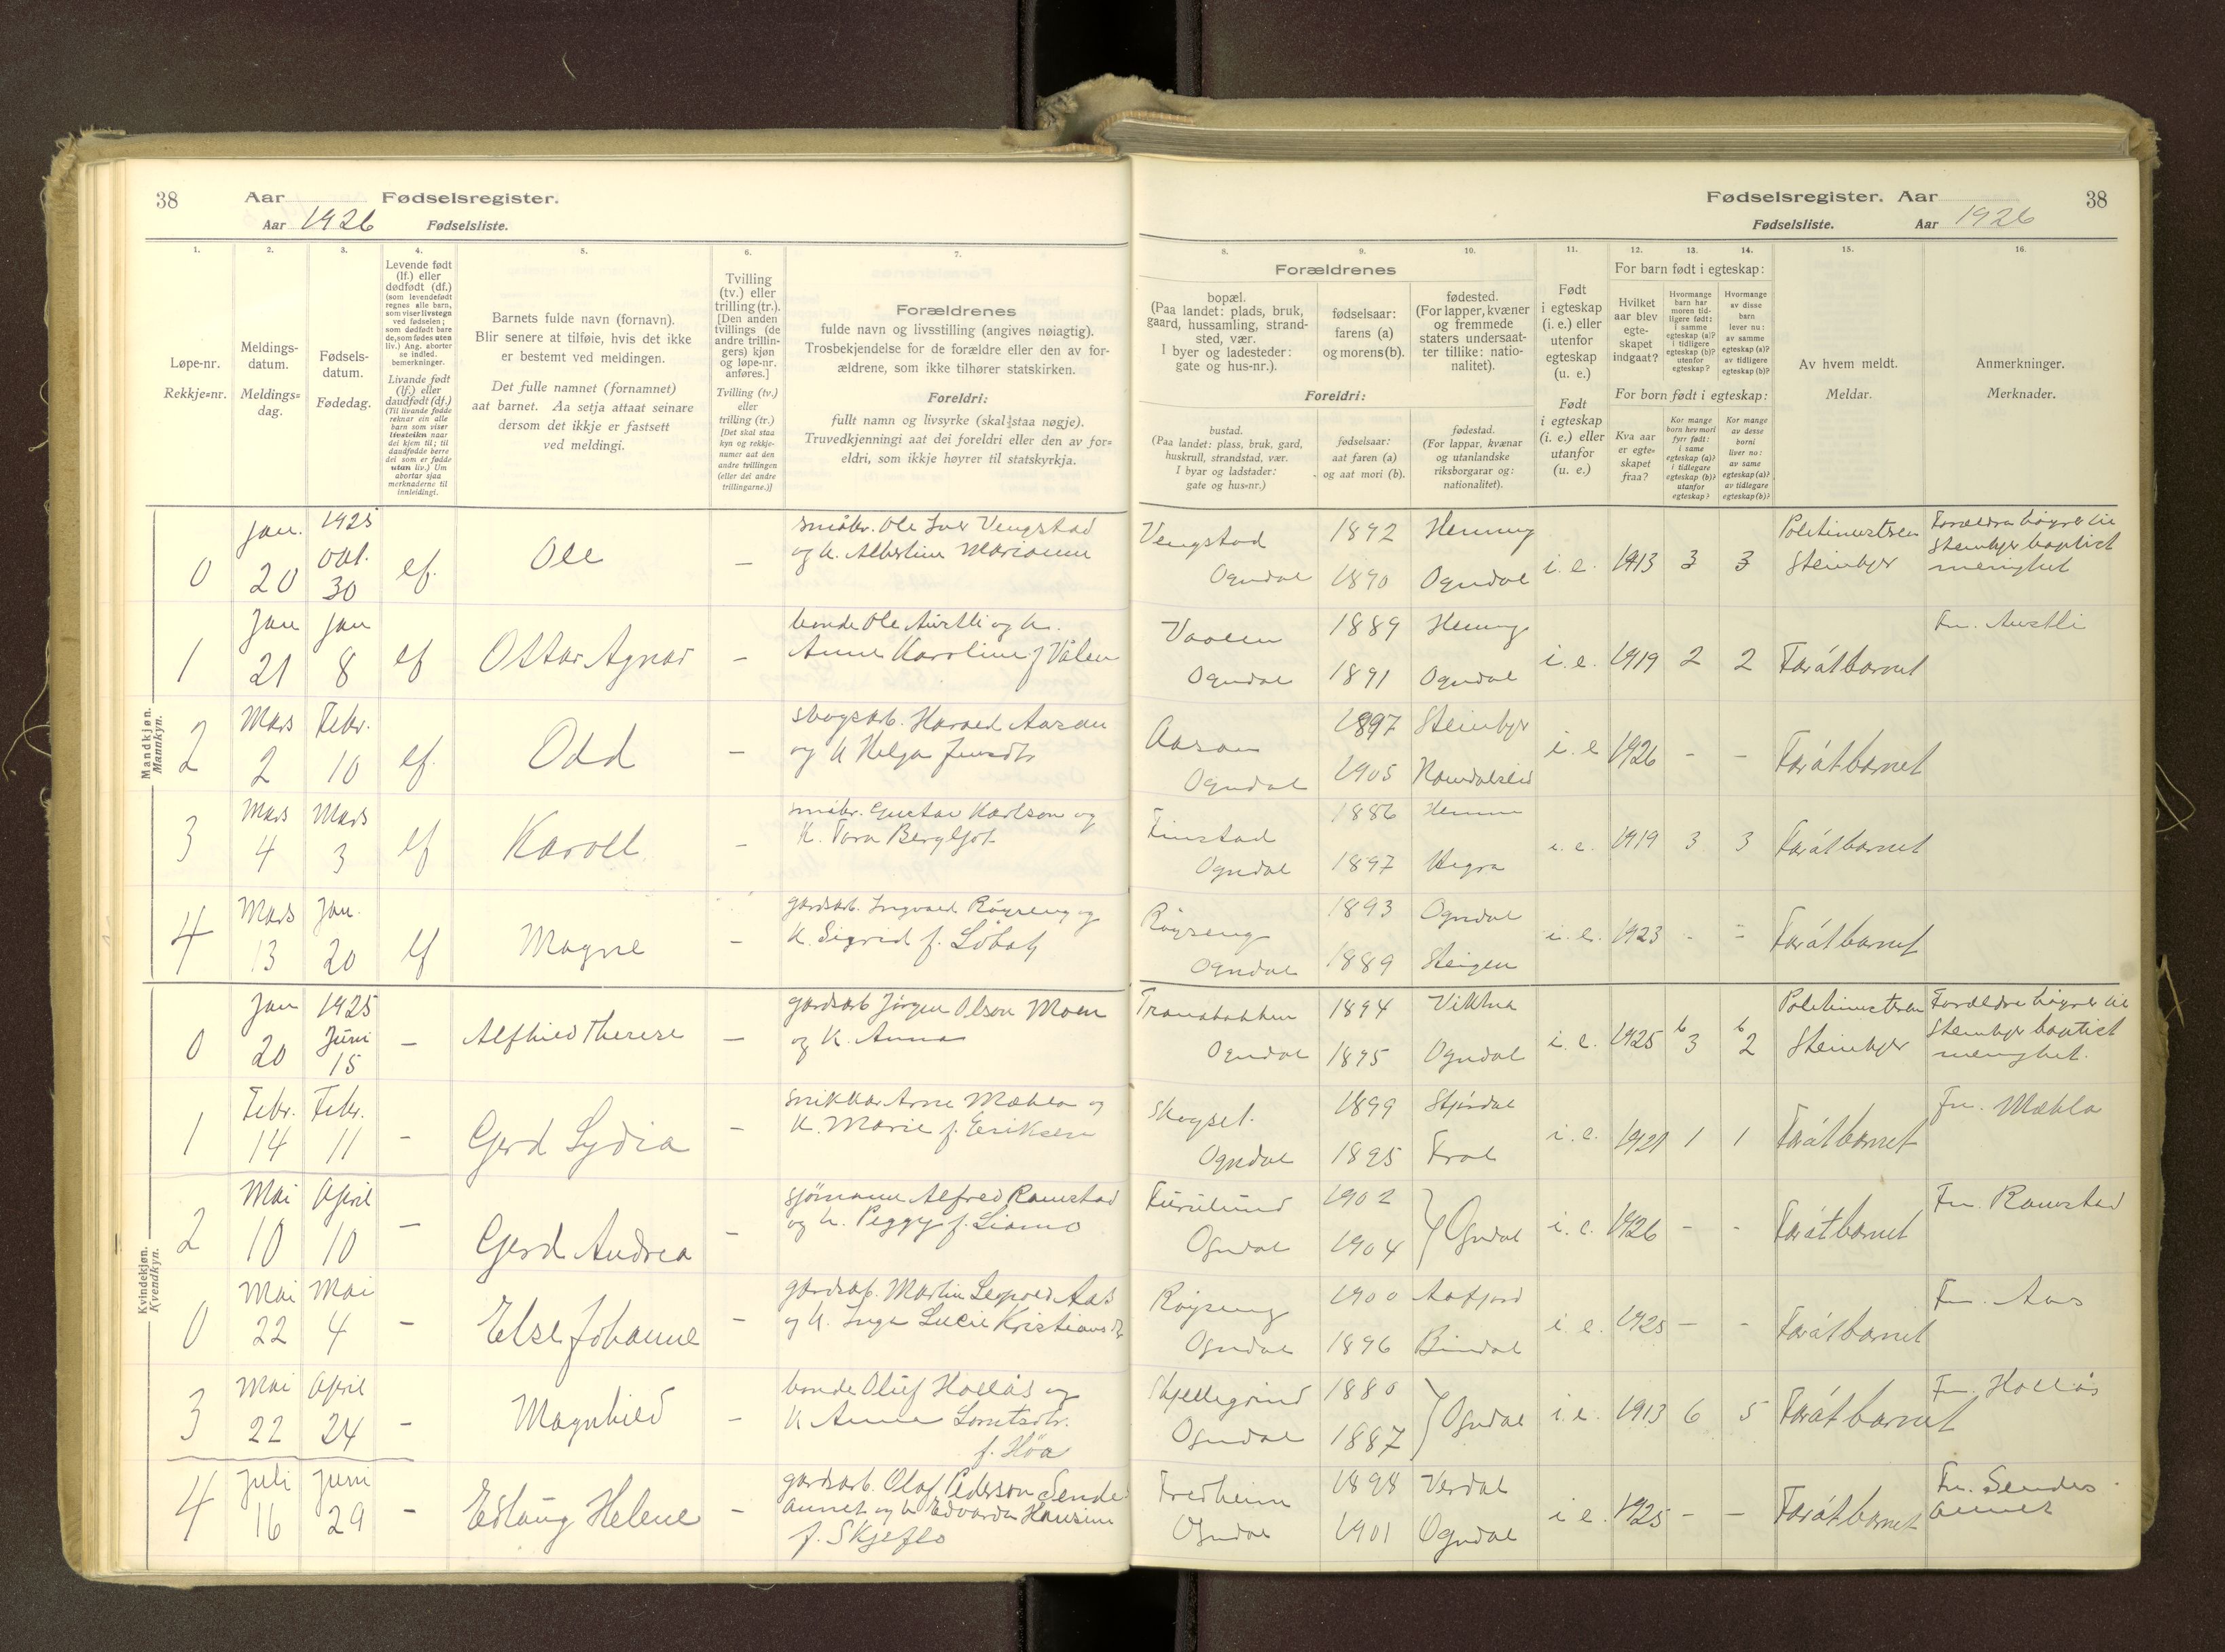 38 Aar Fødselsregister.
Aar 1926 Fødselsliste.
1.
2.
3.
4.
5.
6.
7.
Løpe-nr.
Rekkje=nr.
Meldings-
datum.
Meldings=
dag.
Fødsels-
datum.
Fødedag.
Levende født
(lf.) eller
dødfødt (df.)
(som levendefødt
regnes alle barn,
som viser livstegn
ved fødselen;
som dødfødt bare
de, som fødes uten
liv.) Ang. aborter
se indled.
bemerkninger.
Livande født
(lf.) eller
daudfødt (df.)
(Til livande fødde
reknar ein alle
barn som viser
livsteikn naar
dei kjem til; til
daudfødde berre
dei som er fødde
utan liv.) Um
abortar sjaa
merknaderne til
innleidingi.
Barnets fulde navn (fornavn).
Blir senere at tilføie, hvis det ikke
er bestemt ved meldingen.
Det fulle namnet (fornamnet)
aat barnet. Aa setja attaat seinare
dersom det ikkje er fastsett
ved meldingi.
Tvilling
(tv.) eller
trilling (tr.).
[Den anden
tvillings (de
andre trillin-
gers) kjøn
og løpe-nr.
anføres.]
Tvilling (tv.)
eller
trilling (tr.)
[Det skal staa
kyn og rekkje-
numer aat den
andre tvillingen
(eller dei andre
trillingarne.)]
Forældrenes
fulde navn og livsstilling (angives nøiagtig).
Trosbekjendelse for de forældre eller den av for-
ældrene, som ikke tilhører statskirken.
Foreldri:
fullt namn og livsyrke (skal staa nøgje).
Truvedkjenningi aat dei foreldri eller den av for=
eldri, som ikkje høyrer til statskyrkja.
Mandkjøn.
Mannkyn.
0 Jan. 20 1925 Okt. 30 lf. Ole — småbr. Ole Iver Vengstad
og k. Albertine Marianne
1 Jan 21 Jan 8 lf Ottar Agnar — bonde Ole Austli og k.
Anne Karoline f Vålen
2 Mars 2 Febr. 10 lf. Odd — skogsarb. Harald Aasan
og k Helga Jensdtr
3 Mars 4 Mars 3 lf Karoll — småbr. Gustav Karlson og
k. Tora Bergljot
4 Mars 13 Jan. 20 lf Magne — gardsarb. Ingvald Röyseng og
k. Sigrid f.
Kvindekjøn.
Kvendkyn.
0 Jan 20 1925 Juni 15 — Alfhild Therese — gardsarb Jörgen Olson Moen
og k. Anna
1 Febr. 14 Febr. 11 — Gerd Lydia — snikkar Arne Mæhla og
k. Marie f. Eriksen
2 Mai 10 April 10 — Gerd Andrea — sjömann Alfred Ramstad
og k. Peggy f. Liamo
0 Mai 22 Mai 4 — Else Johanne — gardsarb. Martin Leopold Aas
og k. Inga Lucie Kristiansdtr
3 Mai 22 April 24 — Magnhild — bonde Oluf Hollås og
k Anne Lorntsdtr.
f. Höa
4 Juli 16 Juni 29 — Edlaug Helene — gardsarb. Olaf Pederson Sende
aunet og k Edvarda Hansine
f. Skjeflo
Fødselsregister. Aar 38
Fødselsliste. Aar 1926
8.
9.
10.
11.
12.
13.
14.
15.
16.
Forældrenes
bopæl.
(Paa landet: plads, bruk,
gaard, hussamling, strand-
sted, vær.
I byer og ladesteder:
gate og hus-nr.).
fødselsaar:
farens (a)
og morens (b).
fødested.
(For lapper, kvæner
og fremmede
staters undersaat-
ter tillike: natio-
nalitet).
Foreldri:
bustad.
(Paa landet: plass, bruk, gard,
huskrull, strandstad, vær.
I byar og ladstader:
gate og hus=nr.)
fødselsaar:
aat faren (a)
og aat mori (b).
fødestad.
(For lappar, kvænar
og utanlandske
riksborgarar og:
nationalitet).
Født
i egteskap
(i. e.) eller
utenfor
egteskap
(u. e.)
Født
i egteskap
(i. e.) eller
utanfor
egteskap
(u. e.)
For barn født i egteskap:
Hvilket
aar blev
egte-
skapet
indgaat?
Hvormange
barn har
moren tid-
ligere født:
i samme
egteskap (a)?
i tidligere
egteskap (b)?
utenfor
egteskap?
Hvormange
av disse
barn
lever nu:
av samme
egteskap (a)?
av tidligere
egteskap (b)?
For born født i egteskap:
Kva aar
er egte=
skapet
fraa?
Kor mange
born hev mori
fyrr født:
i same
egteskap (a)?
i tidlegare
egteskap (b)?
utanfor
egteskap?
Kor mange
av desse
borni
liver no:
av same
egteskap (a)?
av tidlegare
egteskap (b)?
Av hvem meldt.
Meldar.
Anmerkninger.
Merknader.
Vengstad Ogndal 1892 1890 Henning Ogndal i. e. 1913 3 3 Politimestren Steinkjer Foreldra höyrer til
Steinkjer baptist
menighet
Ogndal 1889 1891 Henning Ogndal i. e. 1919 2 2 Far åt barnet Fn. Austli
Aasan Ogndal 1897 1905 Steinkjer Namdalseid i. e 1926 - - Far åt barnet
Finstad Ogndal 1886 1897 Hegra i. e. 1919 3 3 Far åt barnet
Röyseng Ogndal 1893 1889 Ogndal Steigen i. e. 1923 - - Far åt barnet
Tranabakken Ogndal 1894 1895 Vikna Ogndal i. e. 1925 b 3 b 2 Politimestren Steinkjer Foreldre höyrer til
Steinkjer baptist
menighet.
Skogset. Ogndal 1899 1895 Stjördal Frol i. e. 1921 1 1 Far åt barnet Fn. Mæhla
Furulund Ogndal 1902 1904 } Ogndal i. e. 1926 - - Far åt barnet Fn. Ramstad
Röyseng Ogndal 1900 1896 Aafjord Bindal i. e. 1925 — - Far åt barnet Fn. Aas
Skjellegrind Ogndal 1880 1887 } Ogndal i. e. 1913 6 5 Far åt barnet Fn. Hollås
Fredheim Ogndal 1898 1901 Verdal Ogndal i e. 1925 - - Far åt barnet Fn. Sendes-
aunet